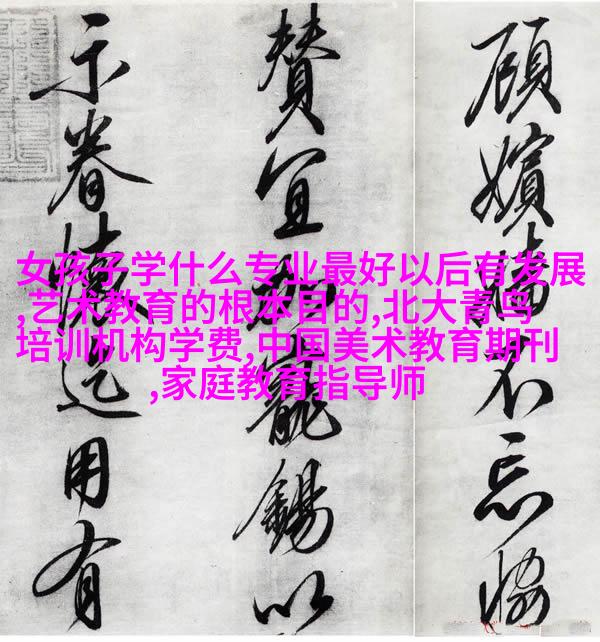 女孩子学什么专业最好以后有发展
,艺术教育的根本目的,北大青鸟
培训机构学费,中国美术教育期刊
,家庭教育指导师
顧嬪不忘協
賛宜加寵錫以
示眷懷迄用有